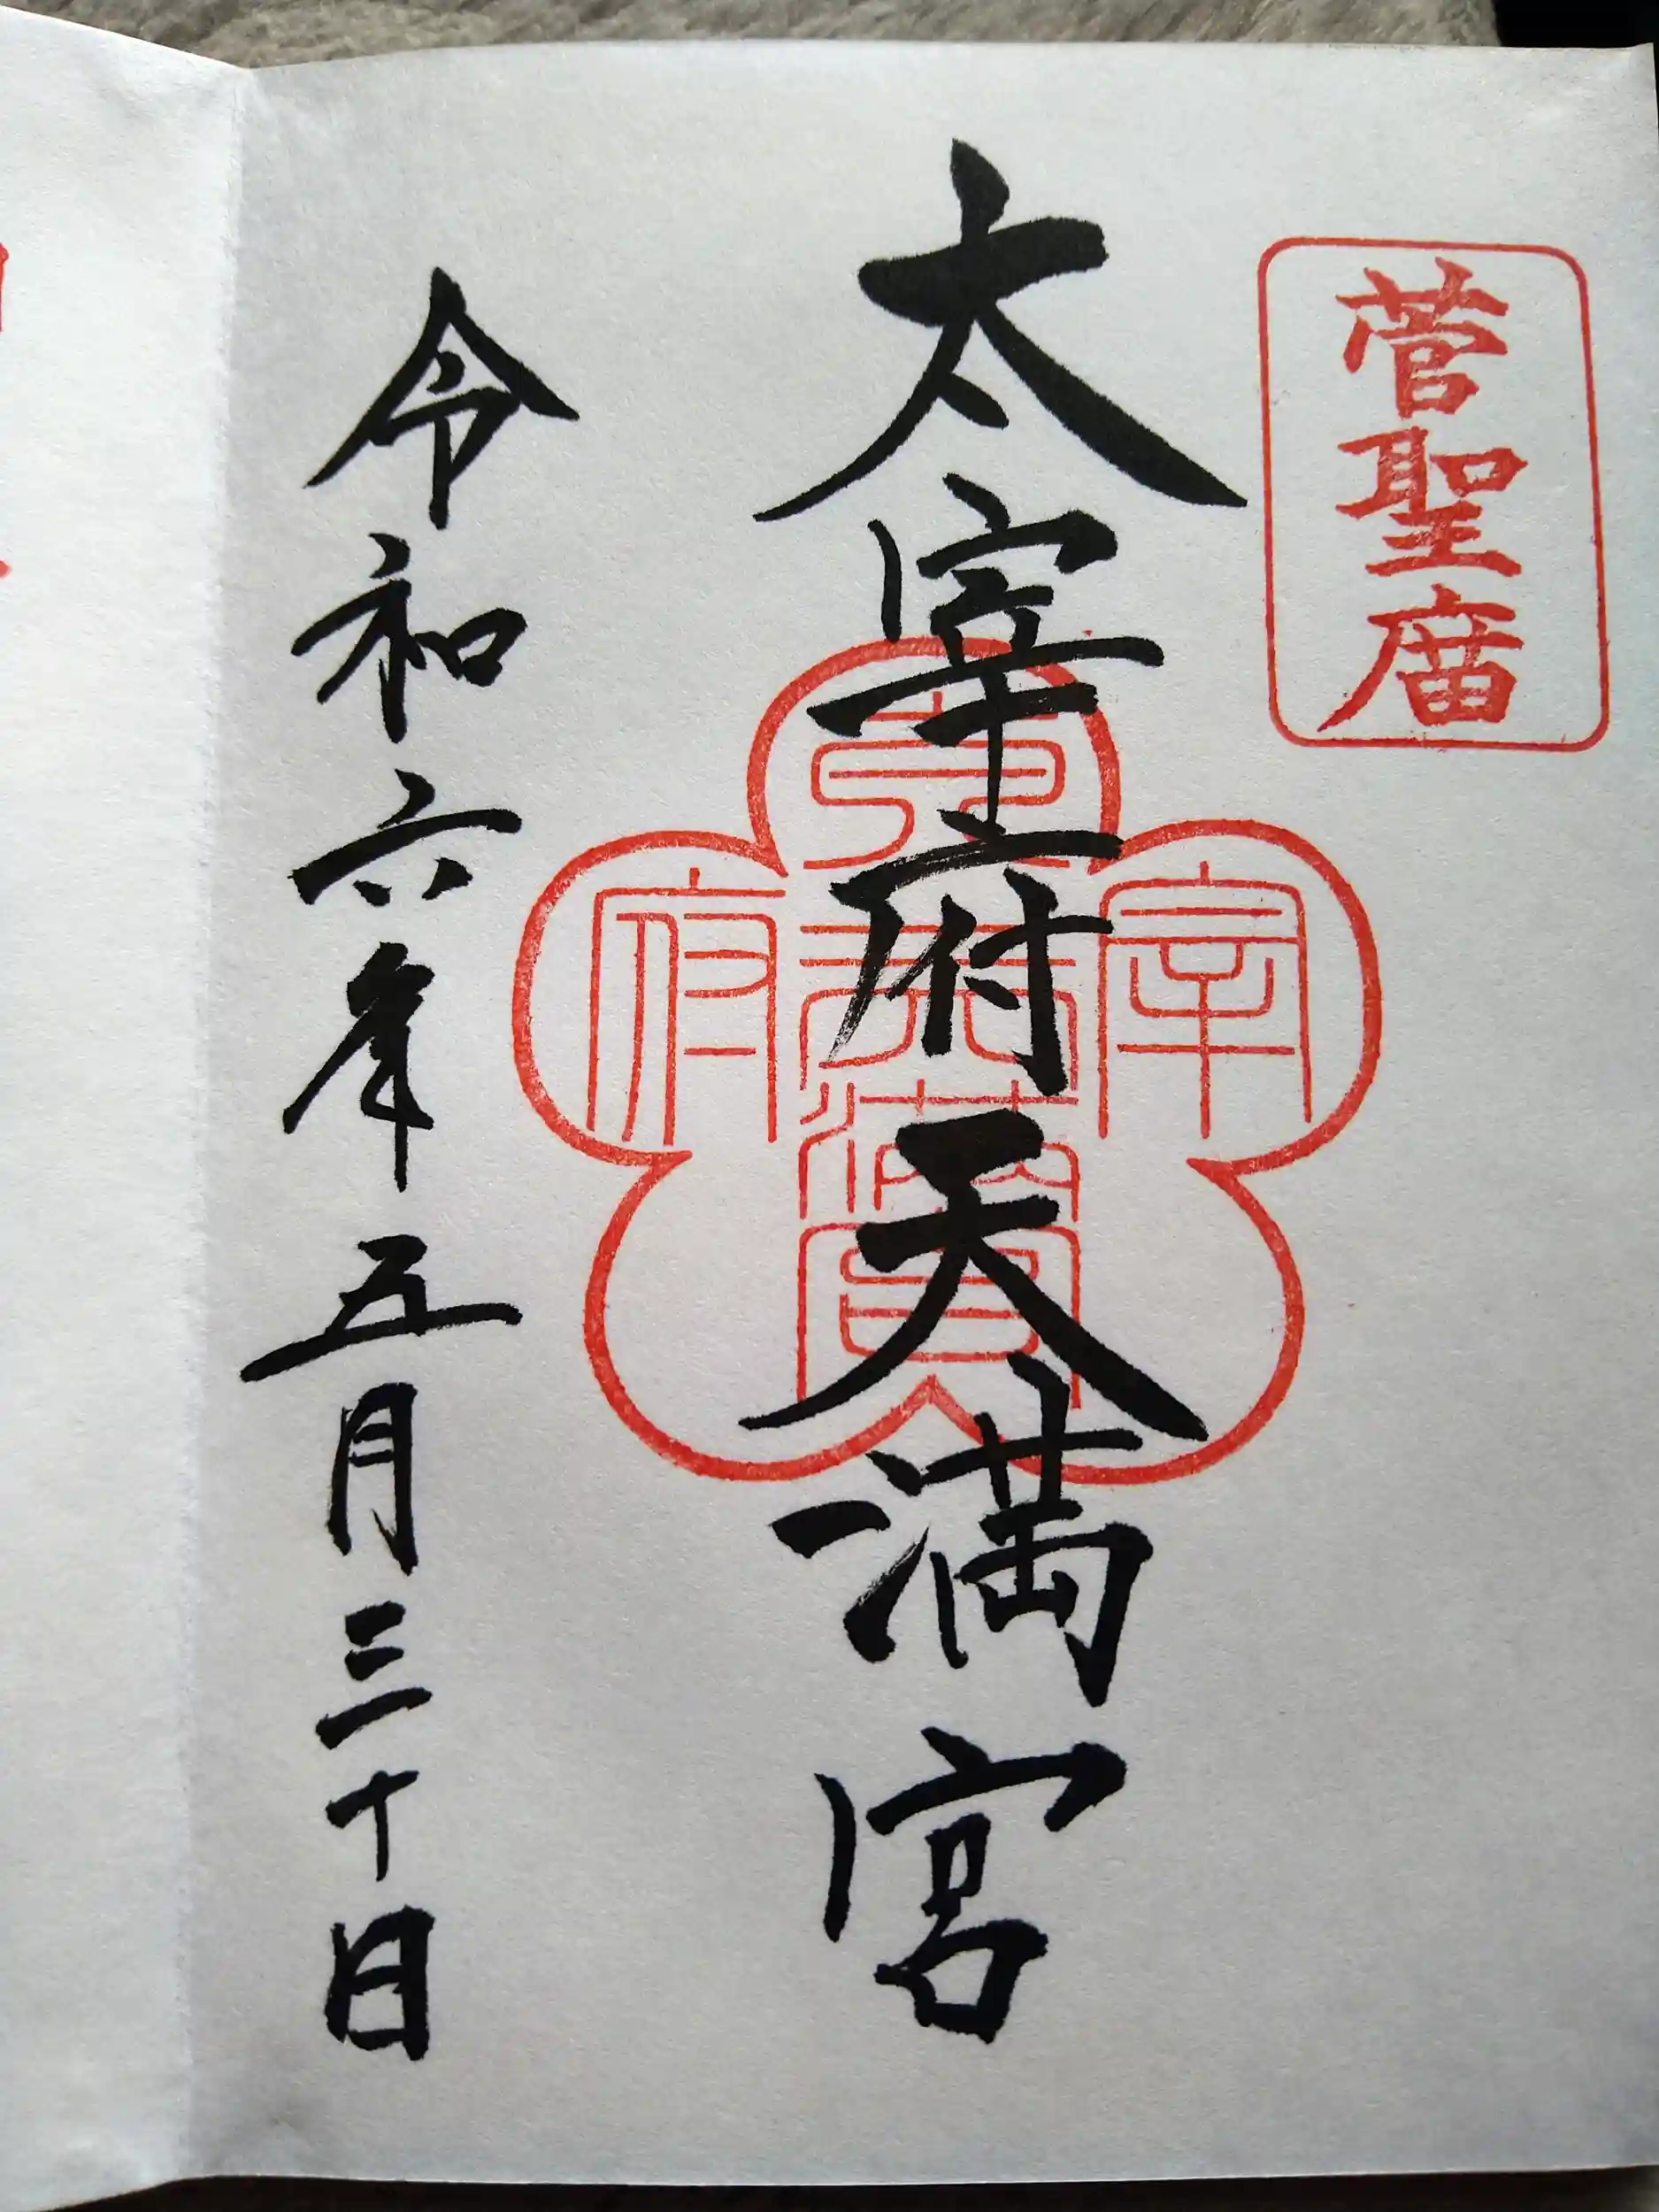 菅聖庿
太宰府天満宮
宰府
天満宮
令和六年五月三十日